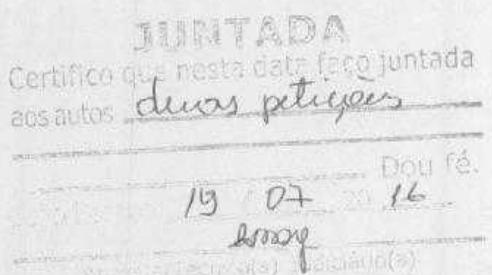 JUNTADA
Certifico que nesta data faço juntada
aos autos duas petições
Dou fé.
19 07 2016